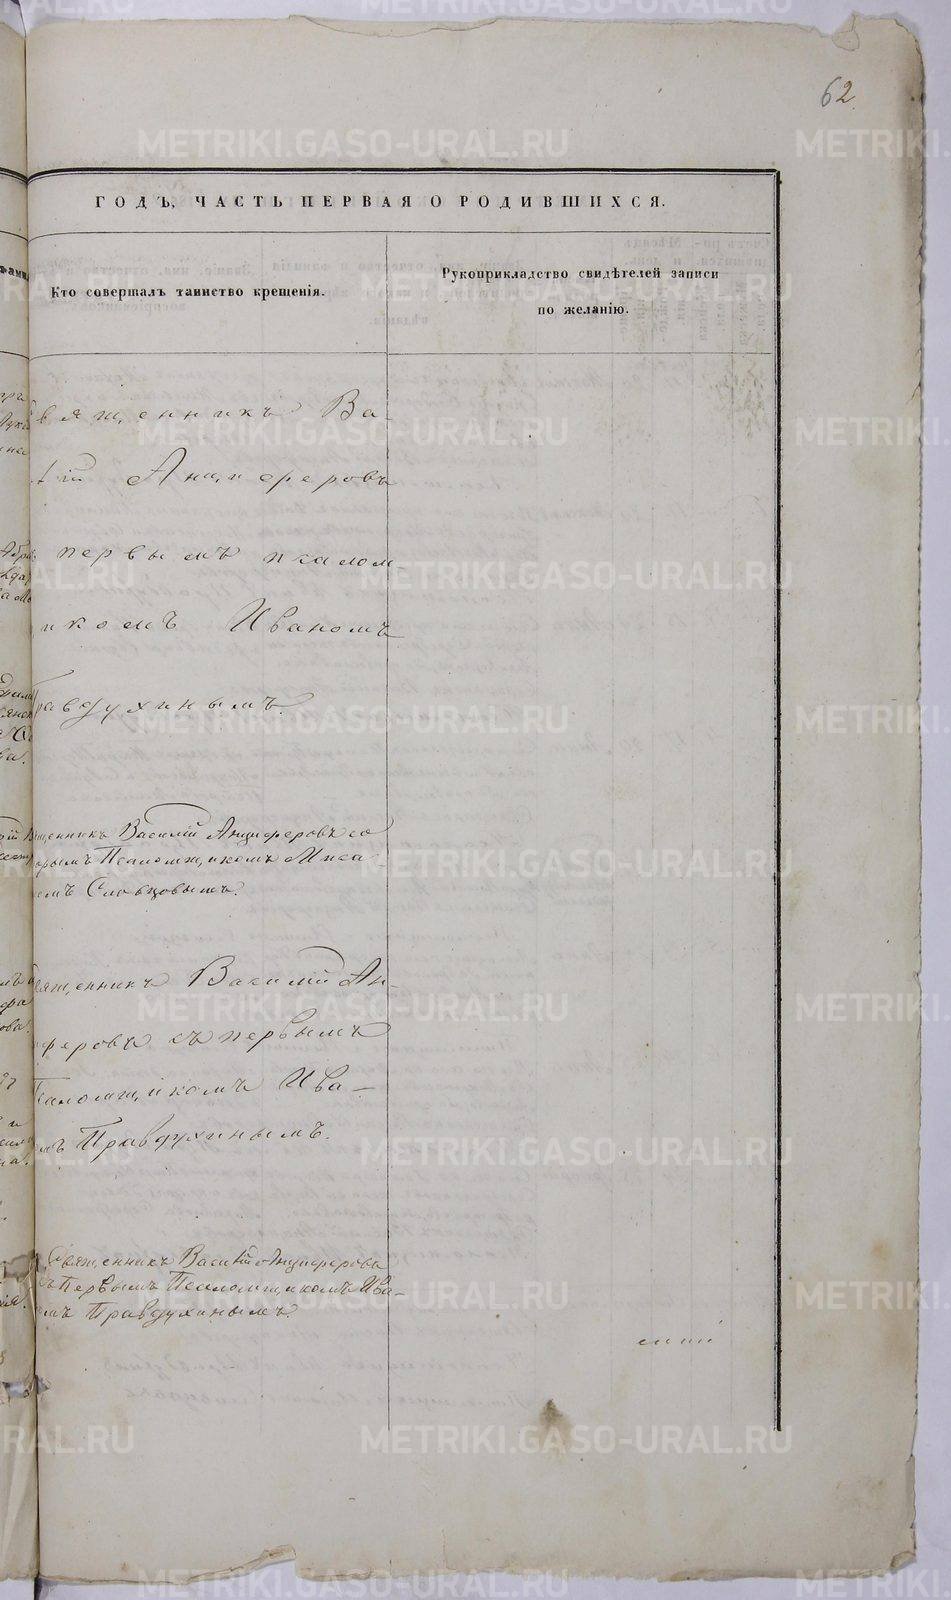 62
ГОДЪ, ЧАСТЬ ПЕРВАЯ О РОДИВШИХСЯ.
Кто совершалъ таинство крещенія.
Рукоприкладство свидѣтелей записи
по желанію.
вященникъ Ва-
лій Анциферовъ
первымъ псалом-
икомъ Иваномъ
равдухинымъ.
щенникъ Василій Анциферовъ со
орымъ Псаломщикомъ Миса-
емъ Словцовымъ.
вященникъ Василій Ан-
феровъ съ первымъ
Псаломщикомъ Ива-
мъ Правдухинымъ.
Священникъ Василій Анциферовъ
съ Первымъ Псаломщикомъ Ива-
омъ Правдухинымъ.
METRIKI.GASO-URAL.RU